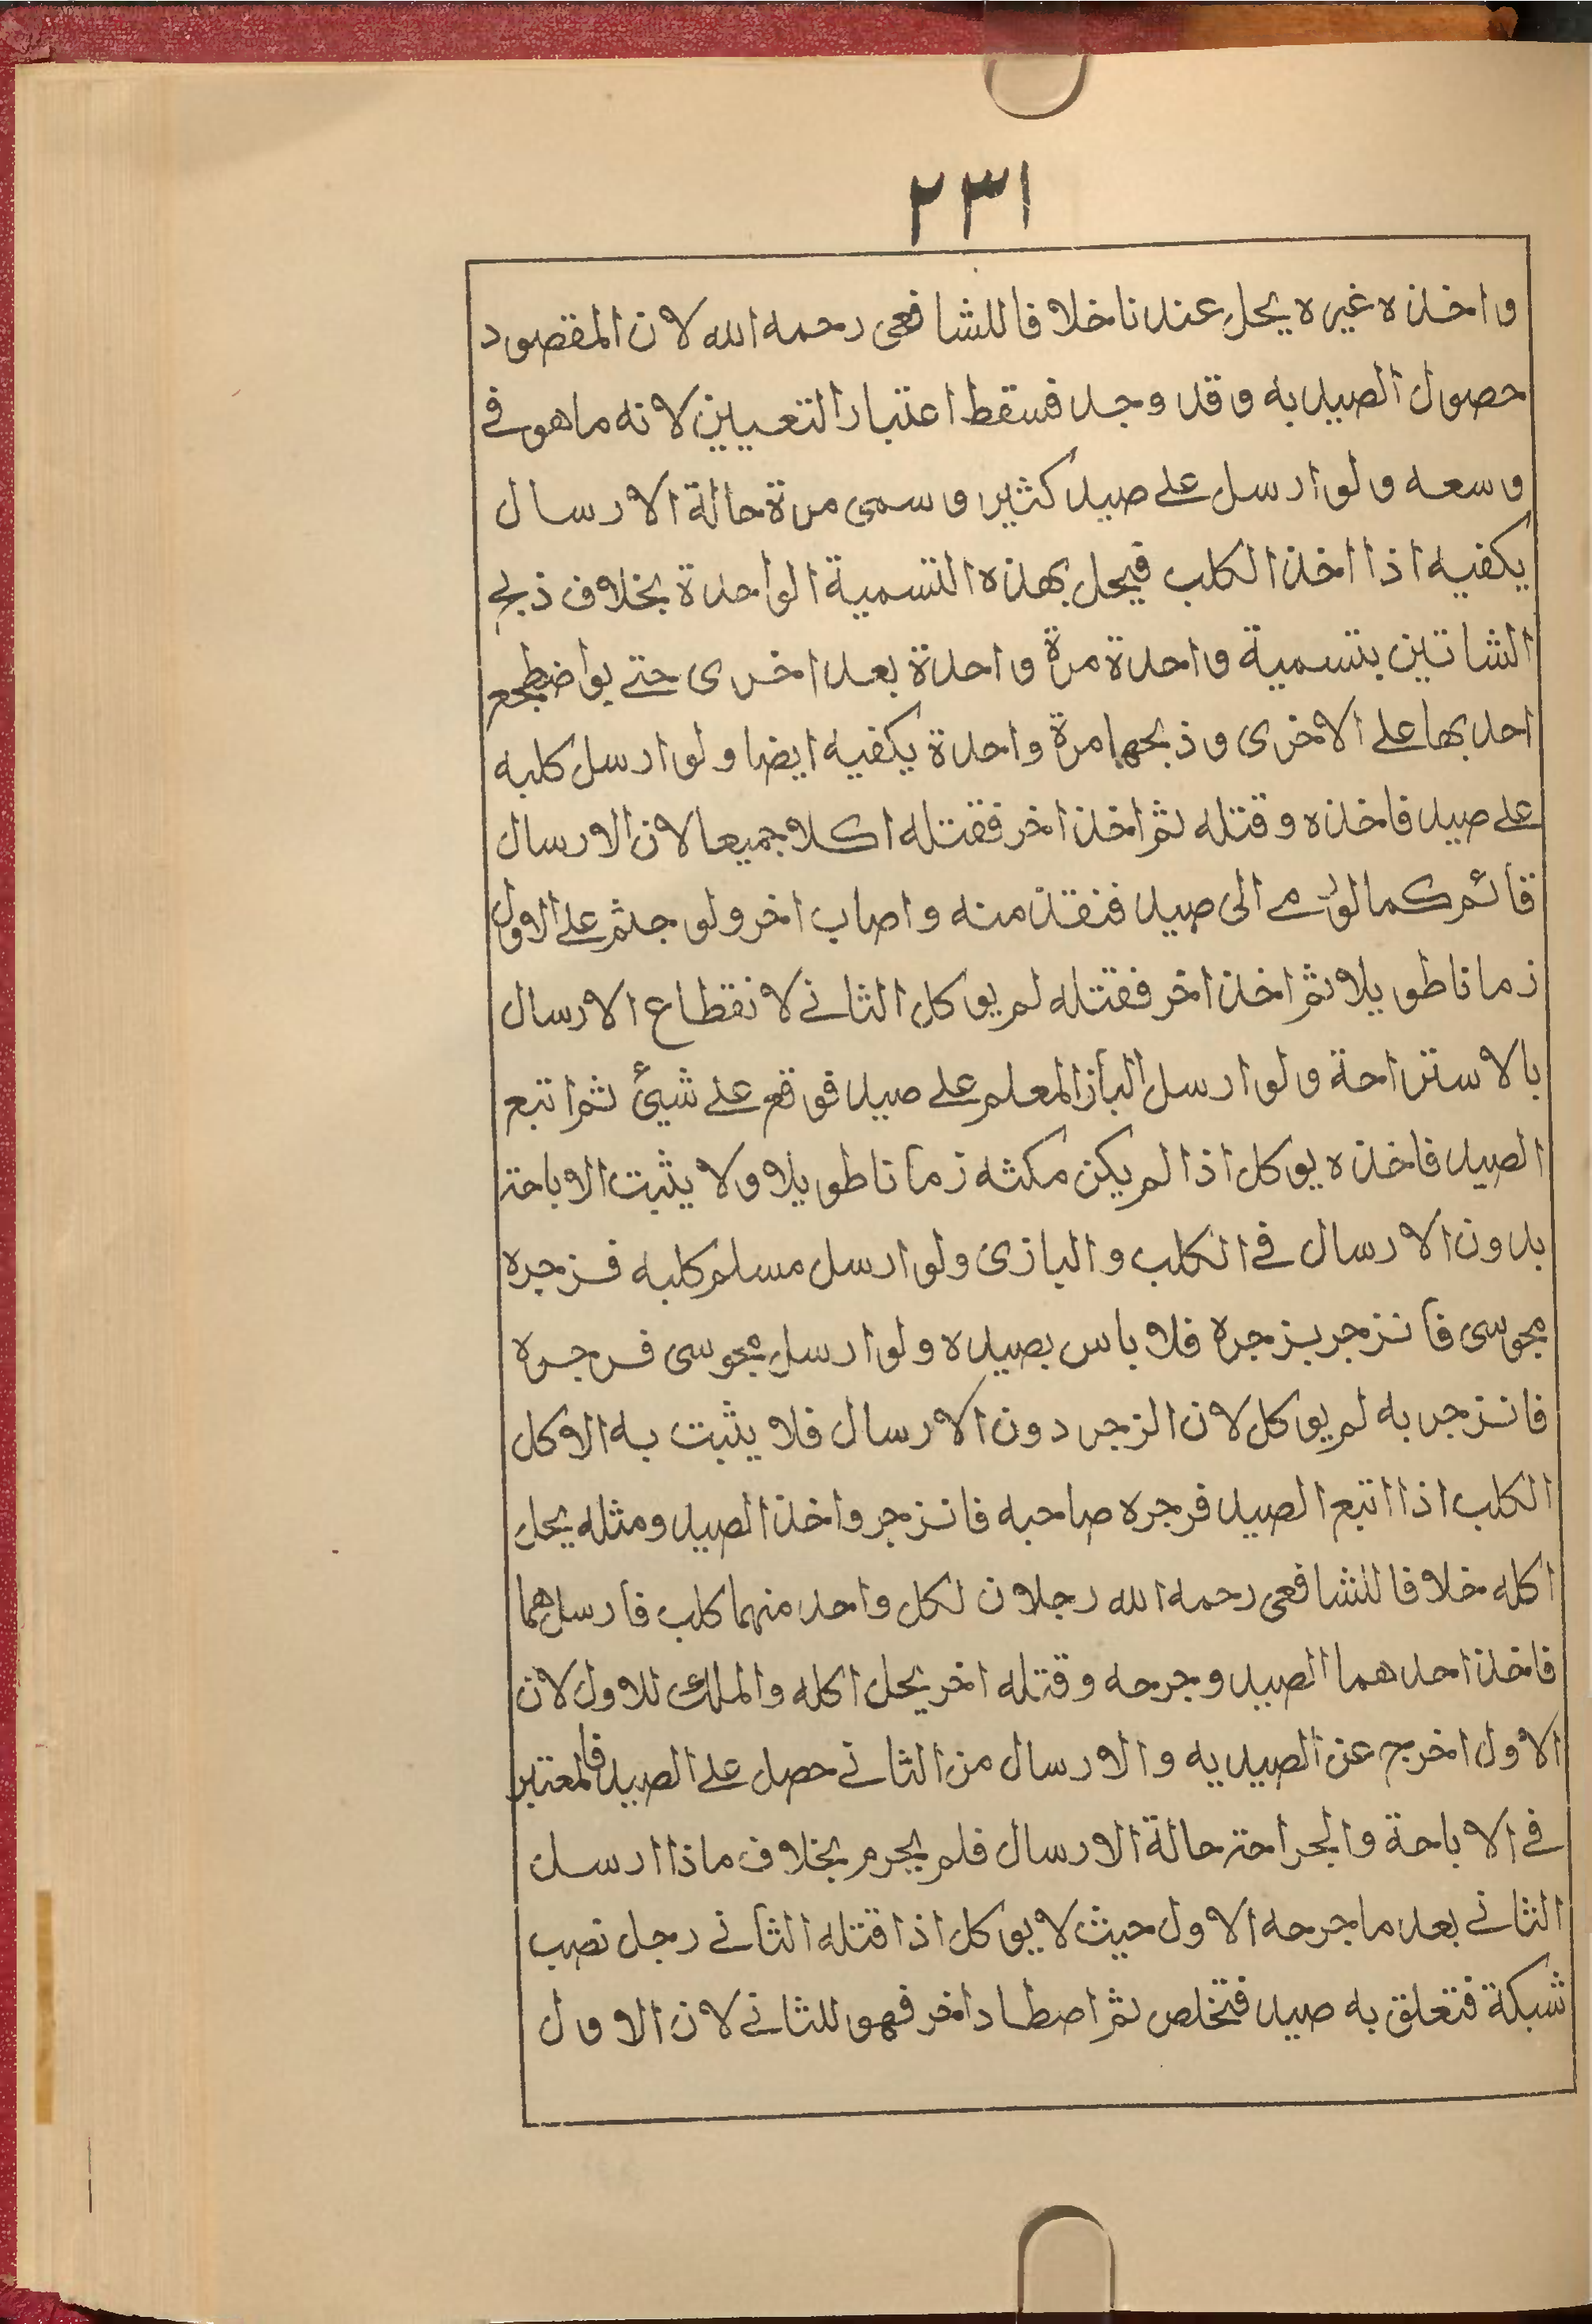 ٢٣١
واخذه غيره يحل عندنا خلافا للشافعى رحمه الله لان المقصود
حصول الصيد به وقد وجد فسقط اعتبار التعيين لانه ما هو فے
وسعه ولو ارسل علے صيد كثير وسمى مرة حالة الارسال
يكفيه اذا اخذ الكلب فيحل بهذه التسمية الواحدة بخلاف ذبح
الشاتين بتسمية واحدة مرة واحدة بعد اخرى حتے لو اضطجع
احدبها علے الاخرى وذبحها مرة واحدة يكفيه ايضا ولو ارسل كلبه
علے صيد فاخذه وقتله ثم اخذ اخر فقتله اكلا جميعا لان الارسال
قائم كما لو رمے الى صيد فنفذ منه واصاب اخر ولو جثم علے الاول
زمانا طويلا ثم اخذ اخر فقتله لم يوكل الثانے لانقطاع الارسال
بالاستراحة ولو ارسل الباز المعلم علے صيد فوقع علے شيئ ثم اتبع
الصيد فاخذه يوكل اذا لم يكن مكثه زمانا طويلا ولا يثبت الاباحة
بدون الارسال فے الكلب والبازى ولو ارسل مسلم كلبه فزجره
مجوسى فانزجر بزجره فلا باس بصيده ولو ارسل مجوسى فرجره
فانزجر به لم يوكل لان الزجر دون الارسال فلا يثبت به الاكل
الكلب اذا اتبع الصيد فرجره صاحبه فانزجر واخذ الصيد ومثله يحل
اكله خلافا للشافعى رحمه الله رجلان لكل واحد منهما كلب فارسلهما
فاخذ احدهما الصيد وجرحه وقتله اخر يحل اكله والملك للاول لان
الاول اخرج عن الصيديه والارسال من الثانے حصل علے الصيد فالمعتبر
فے الاباحة والجراحة حالة الارسال فلم يحرم بخلاف ماذا ارسل
الثانے بعد ما جرحه الاول حيث لا يوكل اذا قتله الثانے رجل نصب
شبكة فتعلق به صيد فتخلص ثم اصطاد اخر فهو للثانے لان الاول